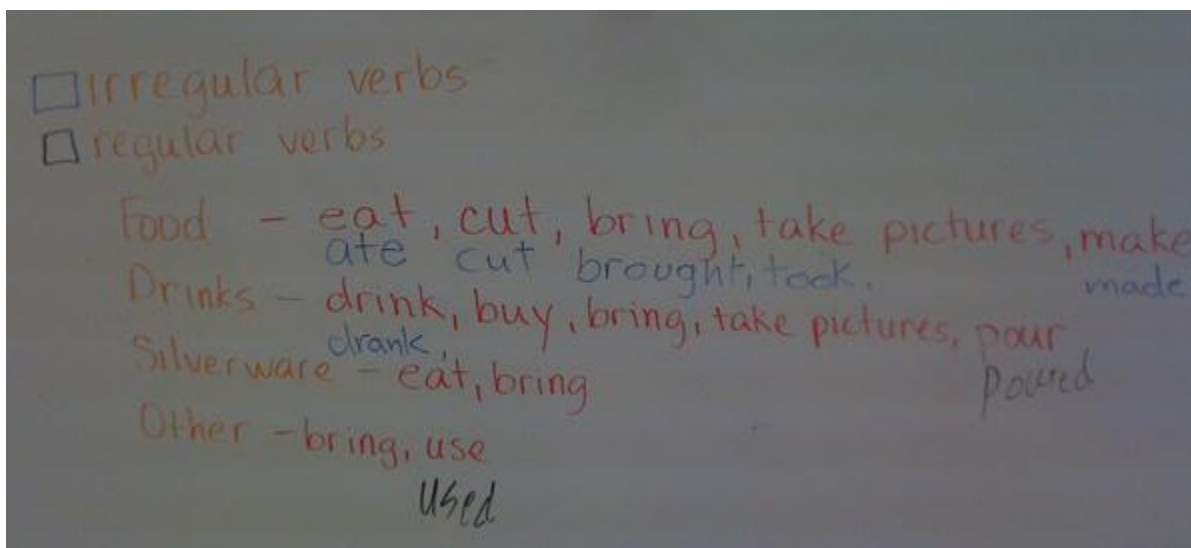 irregular verbs
regular verbs
Food - eat, cut, bring, take pictures, make
ate cut brought, took. made
Drinks - drink, buy, bring, take pictures, pour
drank,
Silverware - eat, bring
poured
Other - bring, use
used